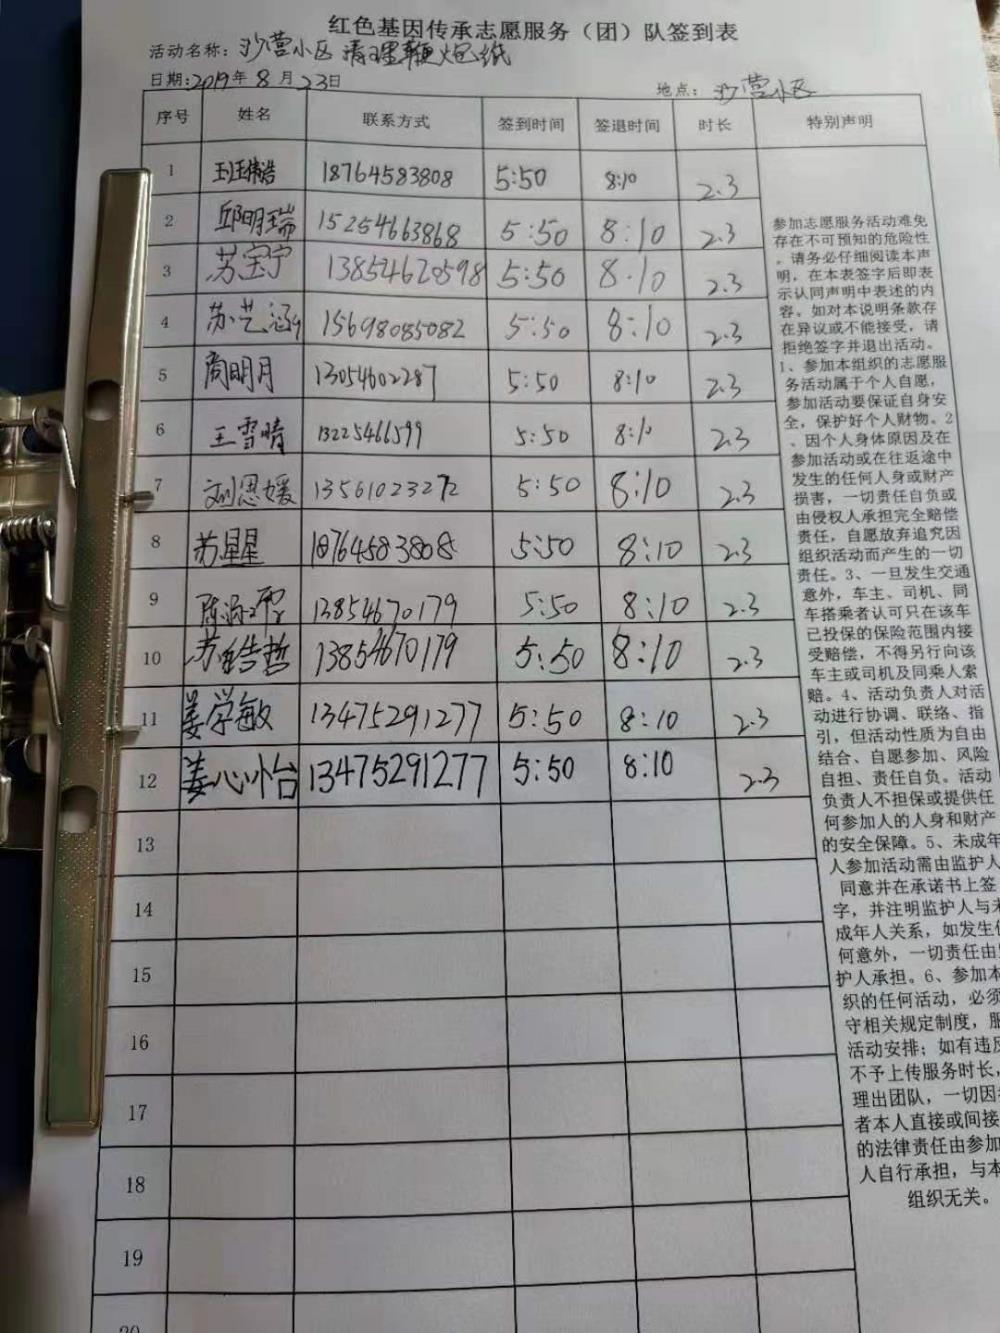 红色基因传承志愿服务（团）队签到表
活动名称：沙营小区清理鞭炮纸
日期:2019年8月23日
地点：沙营小区
序号 姓名 联系方式 签到时间 签退时间 时长 特别声明
1 18764583808 5:50 8:10 2.3
2 邱明瑞 15254663868 5:50 8:10 2.3
3 苏宝宁 13854620598 5:50 8:10 2.3
4 苏艺涵 15698085082 5:50 8:10 2.3
5 周明月 13054602287 5:50 8:10 2.3
6 王雪晴 13225466599 5:50 8:10 2.3
7 刘恩媛 13561023272 5:50 8:10 2.3
8 苏星星 18764583808 5:50 8:10 2.3
9 13854670179 5:50 8:10 2.3
10 苏皓哲 13854670179 5:50 8:10 2.3
11 姜学敏 13475291277 5:50 8:10 2.3
12 姜心怡 13475291277 5:50 8:10 2.3
13
14
15
16
17
18
19
20
参加志愿服务活动难免
存在不可预知的危险性
。请务必仔细阅读本声
明，在本表签字后即表
示认同声明中表述的内
容。如对本说明条款存
在异议或不能接受，请
拒绝签字并退出活动。
1、参加本组织的志愿服
务活动属于个人自愿，
参加活动要保证自身安
全，保护好个人财物。2
、因个人身体原因及在
参加活动或在往返途中
发生的任何人身或财产
损害，一切责任自负或
由侵权人承担完全赔偿
责任，自愿放弃追究因
组织活动而产生的一切
责任。3、一旦发生交通
意外，车主、司机、同
车搭乘者认可只在该车
已投保的保险范围内接
受赔偿，不得另行向该
车主或司机及同乘人索
赔。4、活动负责人对活
动进行协调、联络、指
引，但活动性质为自由
结合、自愿参加、风险
自担、责任自负。活动
负责人不担保或提供任
何参加人的人身和财产
的安全保障。5、未成年
人参加活动需由监护人
同意并在承诺书上签
字，并注明监护人与未
成年人关系，如发生任
何意外，一切责任由监
护人承担。6、参加本
织的任何活动，必须
守相关规定制度，服
活动安排；如有违反
不予上传服务时长，
理出团队，一切因
者本人直接或间接
的法律责任由参加
人自行承担，与本
组织无关。